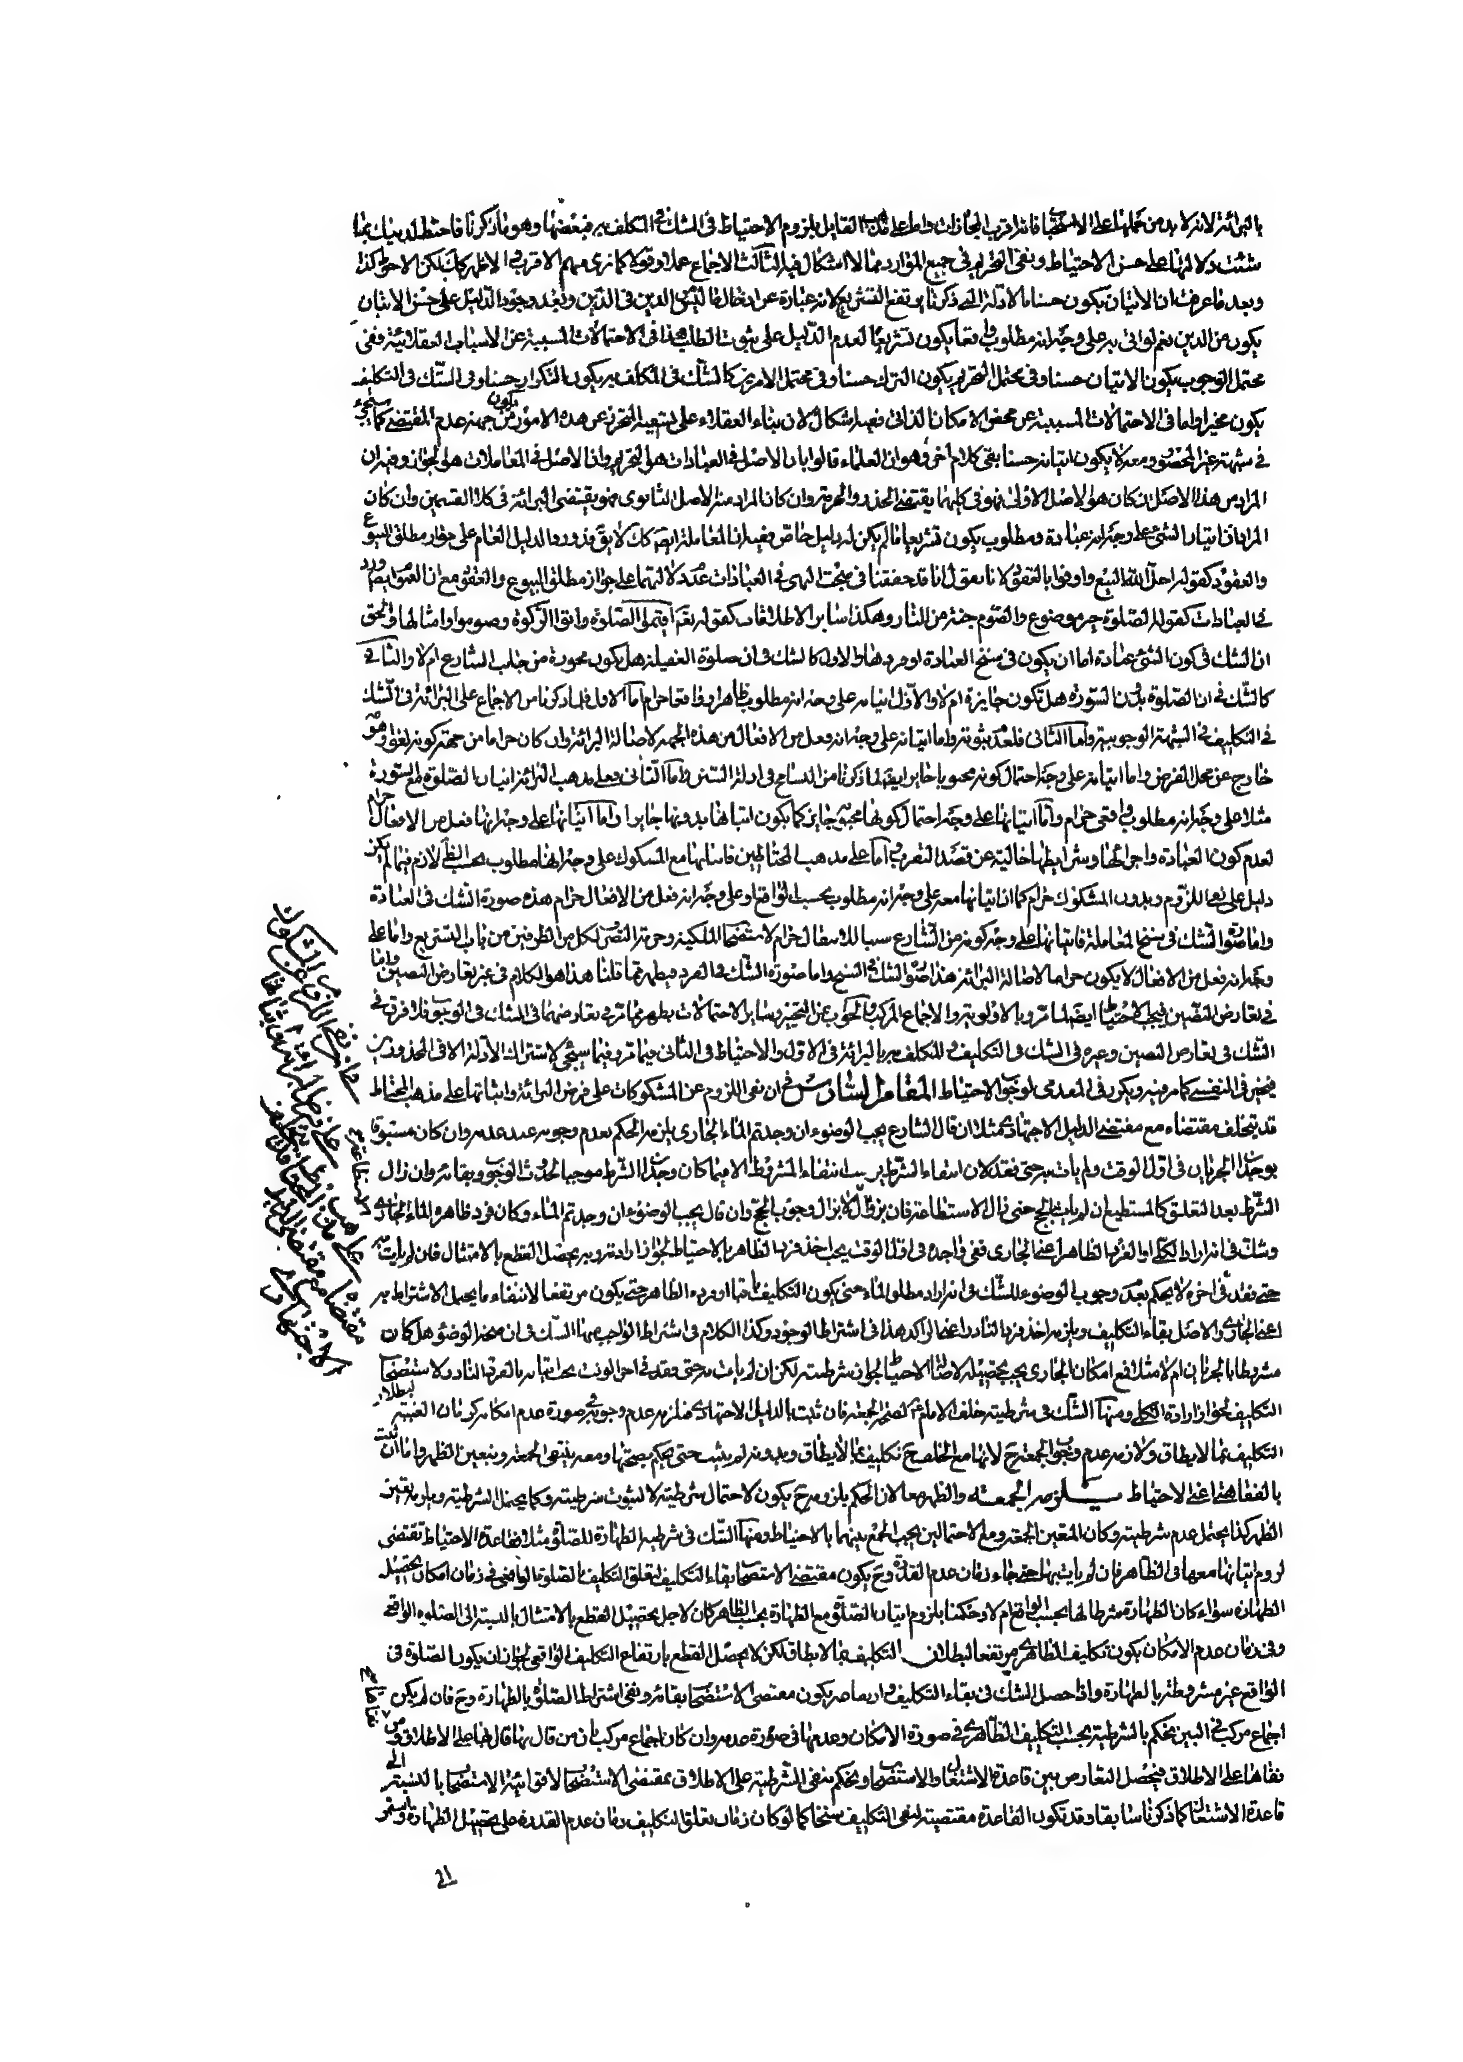 بالبرائة لانه لابد من حملها على الاستحباب فانه اقرب المجازات واما على مذهب القايل بلزوم الاحتياط في الشك في التكلف به فبعضها وهو ما ذكرنا فاحتط لدينك بما
شئت دلالتها على حسن الاحتياط ونفى التحريم في جميع الموارد مما لا اشكال فيه الثالث الاجماع عملا وقولا كما نرى منهم الاقرب كذا الاظهر كك لكن الاحوط كذا
وبعد ما عرفت ان الاتيان يكون حسنا بالادلة التي ذكرنا يرتفع التشريع لانه عبارة عن ادخال ما ليس من الدين في الدين وبعد وجود الدليل على حسن الاتيان
يكون من الدين نعم لو اتى به على وجه انه مطلوب واقعا يكون تشريعا لعدم الدليل على ثبوت الطلب هذا في الاحتمالات المسببة عن الاسباب العقلائية ففى
محتمل الوجوب يكون الاتيان حسنا وفى محتمل التحريم يكون الترك حسنا وفى محتمل الامرين كالشك في المكلف به يكون التكرار حسنا وفى الشك في التكليف
يكون مخيرا واما في الاحتمالات المسببة عن محض الامكان الذاتى ففيه اشكال لان بناء العقلاء على تسفيه المتحرز عن هذه الامور من جهة عدم المقتضى كما سيجىء
في شبهة غير المحصور ومعه لا يكون اتيانه حسنا بقى كلام اخر وهو ان العلماء قالوا بان الاصل في العبادات هو التحريم وان الاصل في المعاملات هو الجواز وفيه ان
المراد من هذا الاصل ان كان هو الاصل الاولى فهو في كليهما يقتضى الحذر والحرمة وان كان المراد منه الاصل الثانوى فهو يقتضى البرائة في كلا القسمين وان كان
المراد ان اتيان الشئ على وجه انه عبادة ومطلوب يكون تشريعا ما لم يكن له دليل خاص ففيه ان المعاملة ايضا كك لا يق قد ورد الدليل العام على جواز مطلق البيوع
والعقود كقوله احل الله البيع واوفوا بالعقود لانا نقول انا قد حققنا في مبحث النهى في العبادات عدم دلالتهما على جواز مطلق البيوع والعقود مع ان العموم ايضا ورد
في العبادات كقوله الصلوة خير موضوع والصوم جنة من النار وهكذا ساير الاطلاقات كقوله تعم اقيموا الصلوة واتوا الزكوة وصوموا وامثالها والحق
ان الشك في كون الشئ عبادة اما ان يكون في سنخ العبادة او فردها والاول كالشك في ان صلوة الغفيلة هل يكون مجوزة من جانب الشارع ام لا والثانى
كالشك في ان الصلوة بدون السورة هل تكون جايزة ام لا والاول اتيانه على وجه انه مطلوب ظاهرا وواقعا حرام اما الاول فلما ذكرنا من الاجماع على البرائة في الشك
في التكليف في الشبهة الوجوبية واما الثانى فلعدم ثبوته واما اتيانه على وجه انه فعل من الافعال من هذه الجهة لاصالة البرائة وان كان حراما من جهة كونه لغوا وهو
خارج عن محل الفرض واما اتيانه على وجه احتمال كونه محبوبا جايز ايضا لما ذكرنا من التسامح في ادلة السنن واما الثانى فعلى مذهب البرائة اتيان الصلوة مع السورة
مثلا على وجه انه مطلوب واقعى حرام واما اتيانها على وجه احتمال كونها محبوبة جايز كما يكون اتيانها بدونها جايزا واما اتيانها على وجه انها فعل من الافعال حرام
لعدم كون العبادة واجزائها وشرايطها خالية عن قصد التقرب واما على مذهب المحتاطين فاتيانها مع المشكوك على وجه انها مطلوب بحسب الظاهر لازم فيما لم يكن
دليل على نفى اللزوم وبدون المشكوك حرام كما ان اتيانها معه على وجه انه مطلوب بحسب الواقع او على وجه انه فعل من الافعال حرام هذه صورة الشك في العبادة
واما صورة الشك في سنخ المعاملة فاتيانها على وجه كونه من الشارع سببا للانتقال حرام لاستصحاب الملكية وحرمة التصرف لكل من الطرفين من باب التشريع واما على
وجه انه فعل من الافعال لا يكون حراما لاصالة البرائة هذا صورة الشك في السنخ واما صورة الشك في الفرد فيظهر مما قلنا هذا هو الكلام في غير تعارض النصين واما
في تعارض النصين فيجب الاحتياط ايضا لما مر وبالاولوية والاجماع المركب والحكم عن التخيير وساير الاحتمالات يظهر مما مر في تعارضهما في الشك في الوجوب فلا فرق في
الشك في تعارض النصين وغيره في الشك في التكليف والمكلف به بالبرائة في الاول والاحتياط في الثانى فيما مر وفيما سيجىء لاشتراك الادلة الا في المحذورين
فيخير في النفسى كما مر فيه ويكون في المعدمى لوجوب الاحتياط المقام السادس في ان نفى اللزوم عن المشكوكات على فرض البرائة واثباتها على مذهب المحتاط
قد يتخلف مقتضاه مع مقتضى الدليل الاجتهادى مثلا ان قال الشارع يجب الوضوء ان وجدتم الماء الجارى يلزمه الحكم بعدم وجوبه عند عدمه وان كان مسبوقا
بوجدان الجريان في اول الوقت ولم يات به حتى نفد لان انتفاء الشرط يوجب انتفاء المشروط الا فيما كان وجدان الشرط موجبا لحدوث الوجوب وبقائه وان زال
الشرط بعد التعلق كالمستطيع ان لم يات بالحج حتى زال الاستطاعة فان بزواله لا يزال وجوب الحج وان قال يجب الوضوء ان وجدتم الماء وكان فرد ظاهره الماء الجارى
وشك في انه اراد الكلى او الفرد الظاهر اعنى الجارى ففى واجده في اول الوقت يجب اخذ فرد الظاهر بالاحتياط لجواز ارادته وبه يحصل القطع بالامتثال فان لم يات به
حتى نفد في اخره لا يحكم بعدم وجوب الوضوء للشك في انه اراد مطلق الماء حتى يكون التكليف باقيا او فرده الظاهر حتى يكون مرتفعا لانتفاء ما يحتمل الاشتراط به
اعنى الجارى والاصل بقاء التكليف ويلزمه اخذ فرد النادر اعنى الراكد هذا في اشتراط الوجود وكذا الكلام في اشتراط الواجب منها الشك في ان صحة الوضوء هل كان
مشروطا بالجريان ام لا مثلا فمع امكان الجارى يجب تحصيله لاصالة الاحتياط لجواز شرطيته لكن ان لم يات به حتى فقد في اخر الوقت يجب اتيانه بالفرد النادر لاستصحاب
التكليف لجواز ارادة الكلى ومنها الشك في شرطية خلف الامام لصحة الجمعة فان ثبت بالدليل الاجتهادى فيلزمه عدم وجوبه في صورة عدم امكانه كزمان الغيبة لبطلان
التكليف بما لا يطاق ولازمه عدم وجوب الجمعة ح لانها مع الخلف ح تكليف بما لا يطاق وبدونه لم يثبت حتى يحكم بصحتها ومعه ينتفى الجمعة ويتعين الظهر واما ان ثبت
بالفقاهة اعنى الاحتياط يلزمه الجمعة والظهر معا لان الحكم بلزومه ح يكون لاحتمال شرطيته لا لثبوت شرطيته وكما يحتمل الشرطية وبه يتعين
الظهر كذا يحتمل عدم شرطيته وكان المتعين الجمعة ومع الاحتمالين يجب الجمع بينهما بالاحتياط ومنها الشك في شرطية الطهارة للصلوة مثلا وقاعدة الاحتياط تقتضى
لزوم اتيانها معها في الظاهر فان لم يات بها حتى جاء زمان عدم القدرة وح يكون مقتضى الاستصحاب بقاء التكليف لتعلق التكليف بالصلوة الواقعى في زمان امكان تحصيل
الطهارة سواء كان الطهارة شرطا لها بحسب الواقع ام لا وحكمنا بلزوم اتيان الصلوة مع الطهارة بحسب الظاهر كان لاجل تحصيل القطع بالامتثال بالنسبة الى الصلوة الواقعى
وفى زمان عدم الامكان يكون تكليف الظاهرى مرتفعا لبطلان التكليف بما لا يطاق لكن لا يحصل القطع بارتفاع التكليف الواقعى لجواز ان يكون الصلوة في
الواقع غير مشروطة بالطهارة واذا حصل الشك في بقاء التكليف وارتفاعه يكون مقتضى الاستصحاب بقائه ونفى اشتراط الصلوة بالطهارة وح فان لم يكن
اجماع مركب في البين يحكم بالشرطية بحسب التكليف الظاهرى في صورة الامكان وعدمها في صورة عدمه وان كان اجماع مركب بان من قال بها قال بها على الاطلاق ومن نفاها
نفاها على الاطلاق فيحصل التعارض بين قاعدة الاشتغال والاستصحاب ويحكم بنفى الشرطية على الاطلاق بمقتضى الاستصحاب لاقوائية الاستصحاب بالنسبة الى
قاعدة الاشتغال كما ذكرنا سابقا وقد تكون القاعدة مقتضية لنفى التكليف سنخا كما لو كان زمان تعلق التكليف زمان عدم القدرة على تحصيل الطهارة